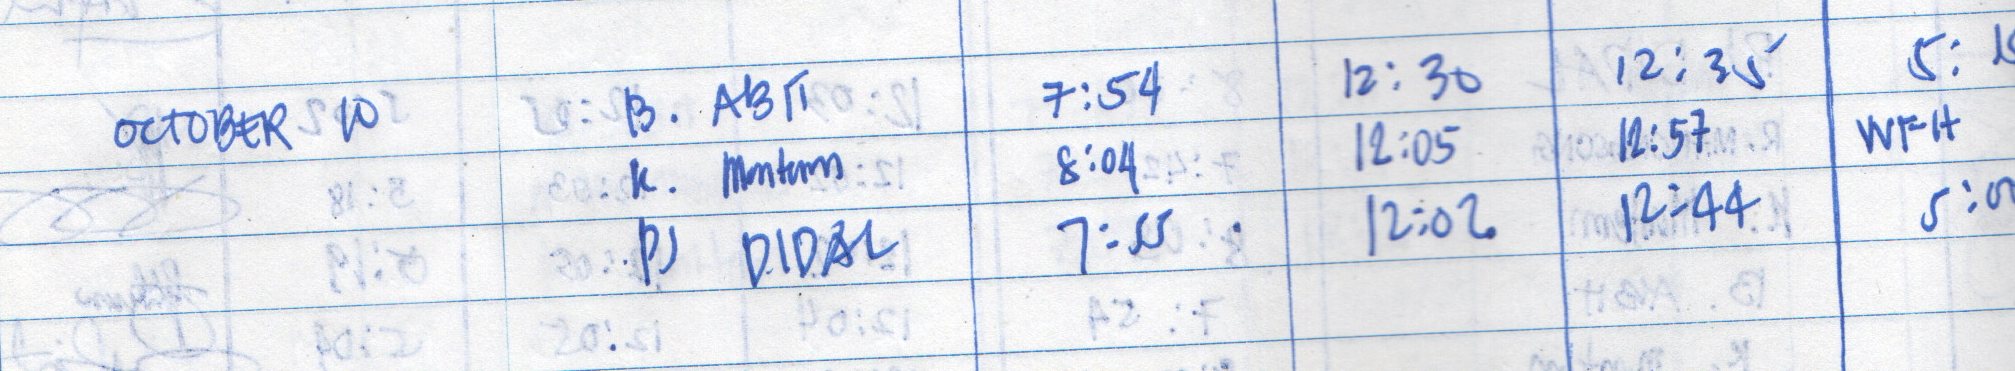 OCTOBER 10 B. ABIT 7:54 12:30 12:35 5:
K. 8:04 12:05 12:57 WFH
PJ DIDAL 7:55 12:02 12:44 5:0